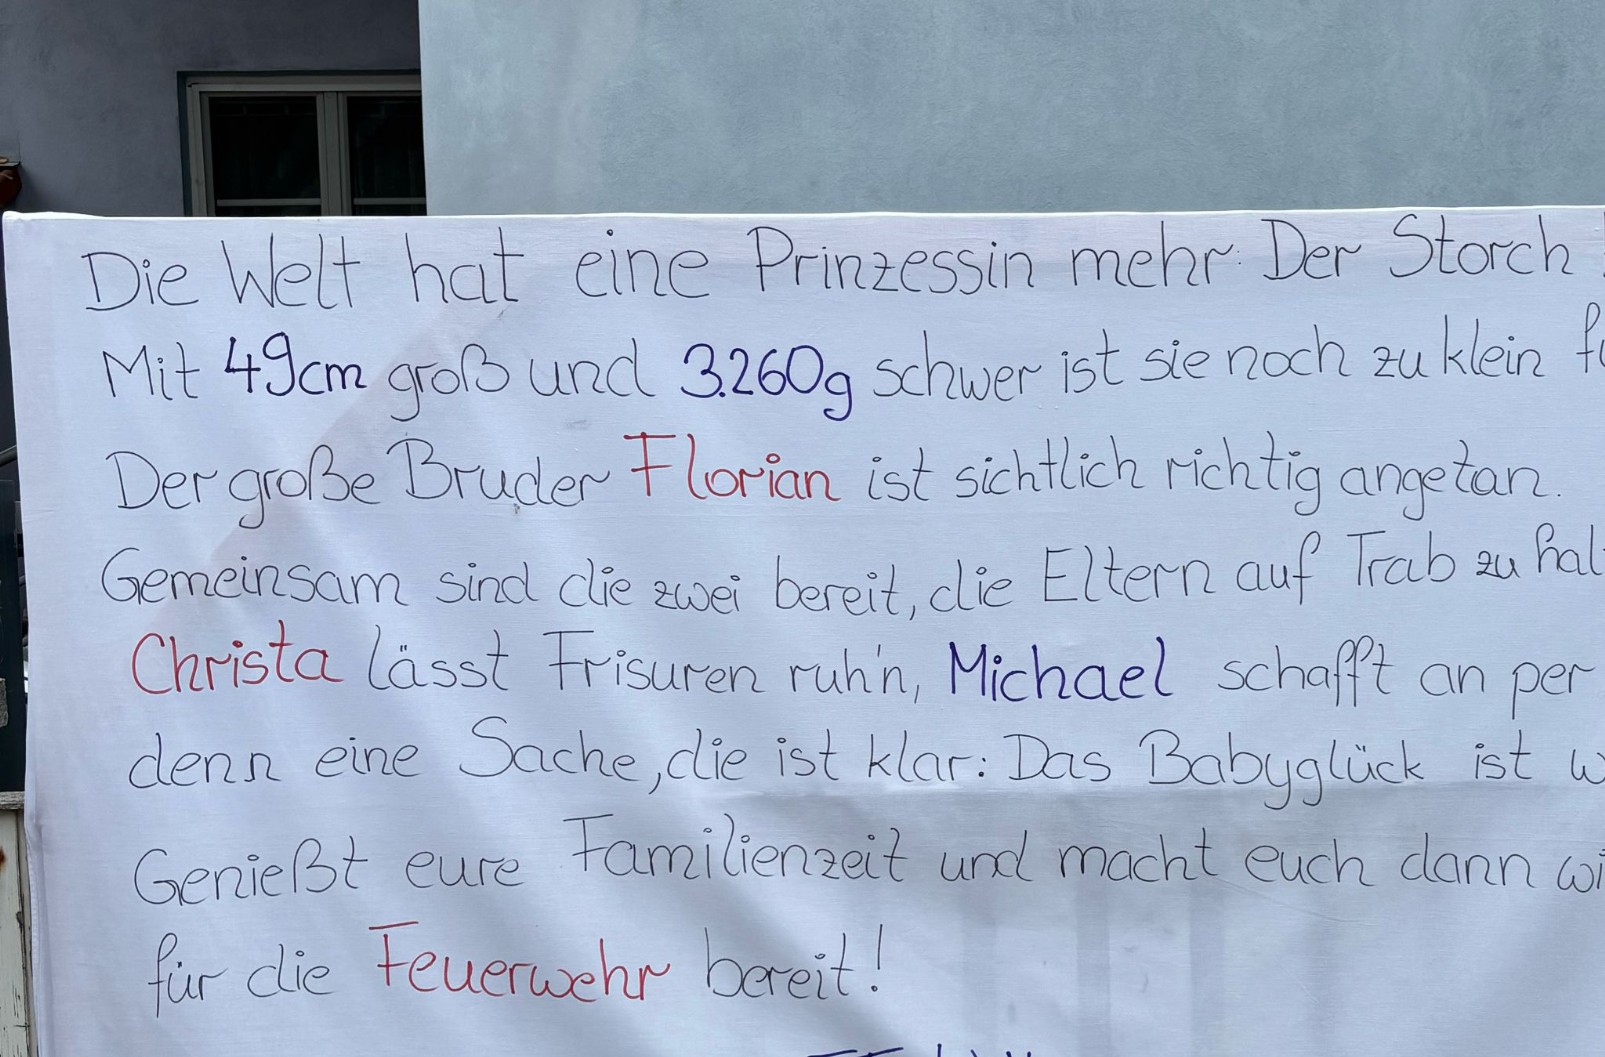 Die Welt hat eine Prinzessin mehr: Der Storch
Mit 49cm groß und 3.260g schwer ist sie noch zu klein
Der große Bruder Florian ist sichtlich richtig angetan.
Gemeinsam sind die zwei bereit, die Eltern auf Trab zu
Christa lässt Frisuren ruh'n, Michael schafft an per
denn eine Sache, die ist klar: Das Babyglück ist
Genießt eure Familienzeit und macht euch dann
für die Feuerwehr bereit!